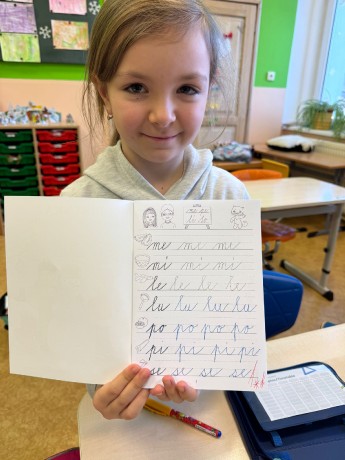 me me me
mi mi mi
le le le le
lu lu lu lu
po po po po
pi pi pi pi
se se se se